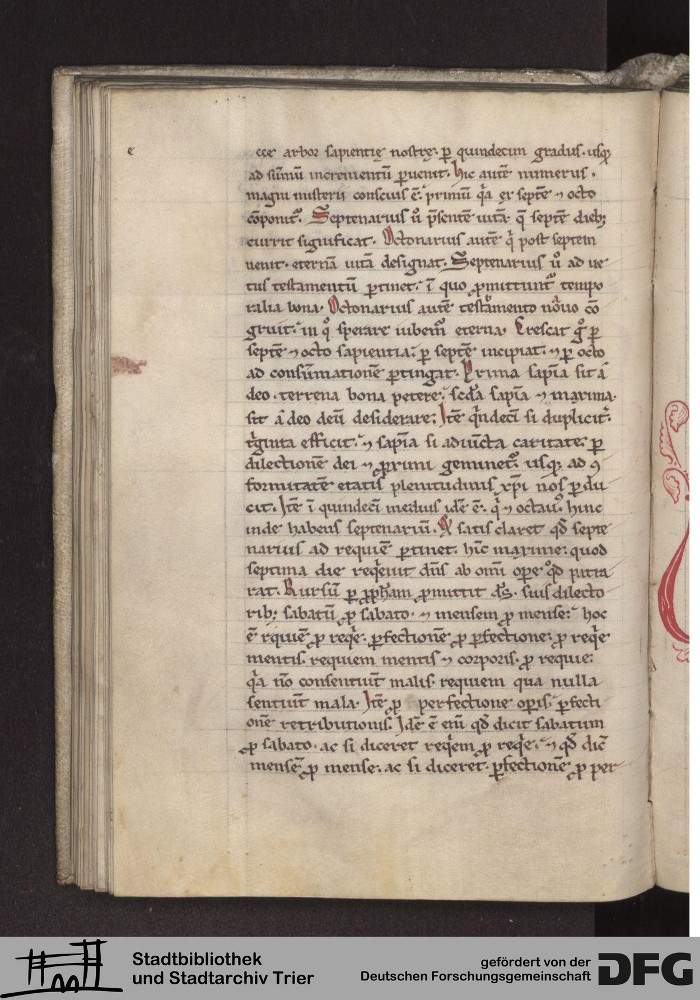 e cce arbor sapientię nostrę. ꝑ quindecim gradus. usqꝫ
ad sūmū incrementū ꝑuenit. hic autē numerus.
magni misterii conscius ē. primū q̇a ex septē ⁊ octo
cōponit᷑. Septenarius ū p̄sentē uitā q̄ septē dieb;
currit significat. Octonarius autē q̇ post septem
uenit. eternā uitā designat. Septenarius ū ad ue
tus testamentū ꝑtinet. ī quo ꝓmittunt᷑ tempo
ralia bona. Octonarius autē testamento nouo cō
gruit. in q̊ sperare iubem᷑ eterna. Crescat g̊ ꝑ
septē ⁊ octo sapientia. ꝑ septē incipiat. ⁊ ꝑ octo
ad consūmationē ꝑtingat. Prima sapīa sit a
deo. terrena bona petere. scd̄a sapīa ⁊ maxima.
sit a deo deū desiderare. Itē q̇ndecī si duplicit᷑.
t̍ginta efficit. ⁊ sapīa si adiūcta caritate. ꝑ
dilectionē dei ⁊ ꝓximi geminet᷑. usqꝫ ad ꝯ
formitatē etatis plenitudinis xp̄i nos ꝑdu
cit. Itē ī quindecī medius idē ē. q̇ ⁊ octau᷒. hinc
inde habens septenariū. Et satis claret qd̄ septe
narius ad requiē ꝑtinet. hīc maxime. quod
septima die req̇euit dn̄s ab omī oꝑe qd̄ patra
rat. Rursū ꝑ ꝓph̄am ꝓmittit ds̄. suis dilecto
rib; sabatū ꝓ sabato. ⁊ mensem ꝓ mense. hoc
ē rq̇uiē ꝓ req̇e. ꝑfectionē ꝓ ꝑfectione. ꝓ req̇e
mentis. requiem mentis ⁊ corporis. ꝓ requie.
q̇a nō consentiūt malis. requiem qua nulla
sentiūt mala. Itē ꝓ perfectione oꝑis. ꝑfecti
onē retributionis. Idē ē enī qd̄ dicit sabatum
ꝓ sabato. ac si diceret req̇em ꝓ req̇e. ⁊ qd̄ dic̄
mensē ꝓ mense. ac si diceret. ꝑfectionē ꝓ per
Stadtbibliothek
und Stadtarchiv Trier
gefördert von der
Deutschen Forschungsgemeinschaft
DFG